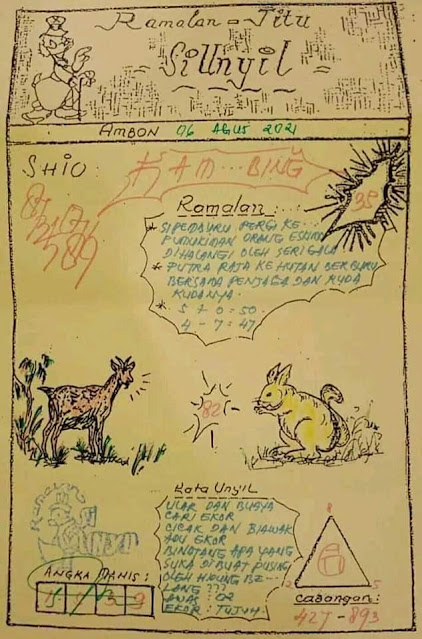 Ramalan = Jitu
= SiUnyil =
AMBON 06 AGUS 2021
SHIO:
KAM...BING
38
Ramalan:
* SIPEMBURU PERGI KE...
PUMUKIMAN ORANG ESKIMO
DIHALANGI OLEH SERIGALA
* PUTRA RAJA KE HUTAN BERBURU
BERSAMA PENJAGA DAN KUDA
KUDANYA.
* 5 + 0 = 50.
4 - 7 = 47
82
Kata Unyil
ULAR DAN BUAYA
CARI EKOR
CICAK DAN BIAWAK
ADU EKOR
BINATANG APA YANG
SUKA DI BUAT PUSING
OLEH HIDUNG BE...
LANG ???
EKOR : TUJUH.
Ramalan
UNYIL
ANGKA MANIS:
2
5
Cabangan:
427 - 893